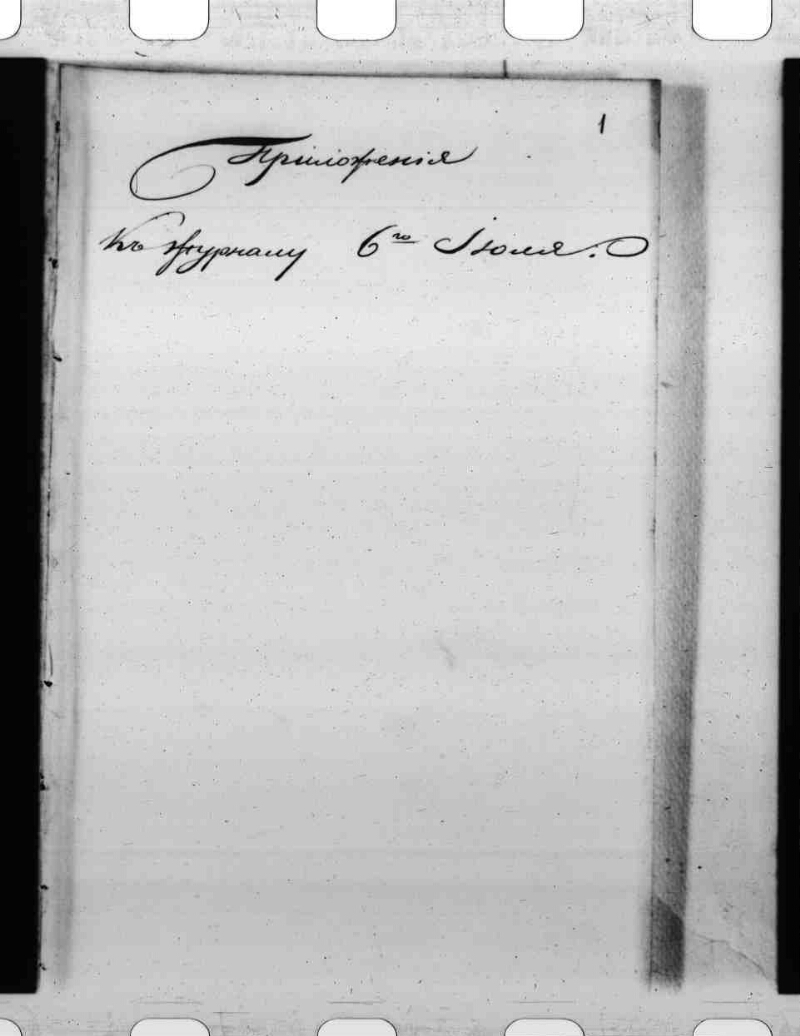 1
Приложенія
Къ журналу 6го Іюля.